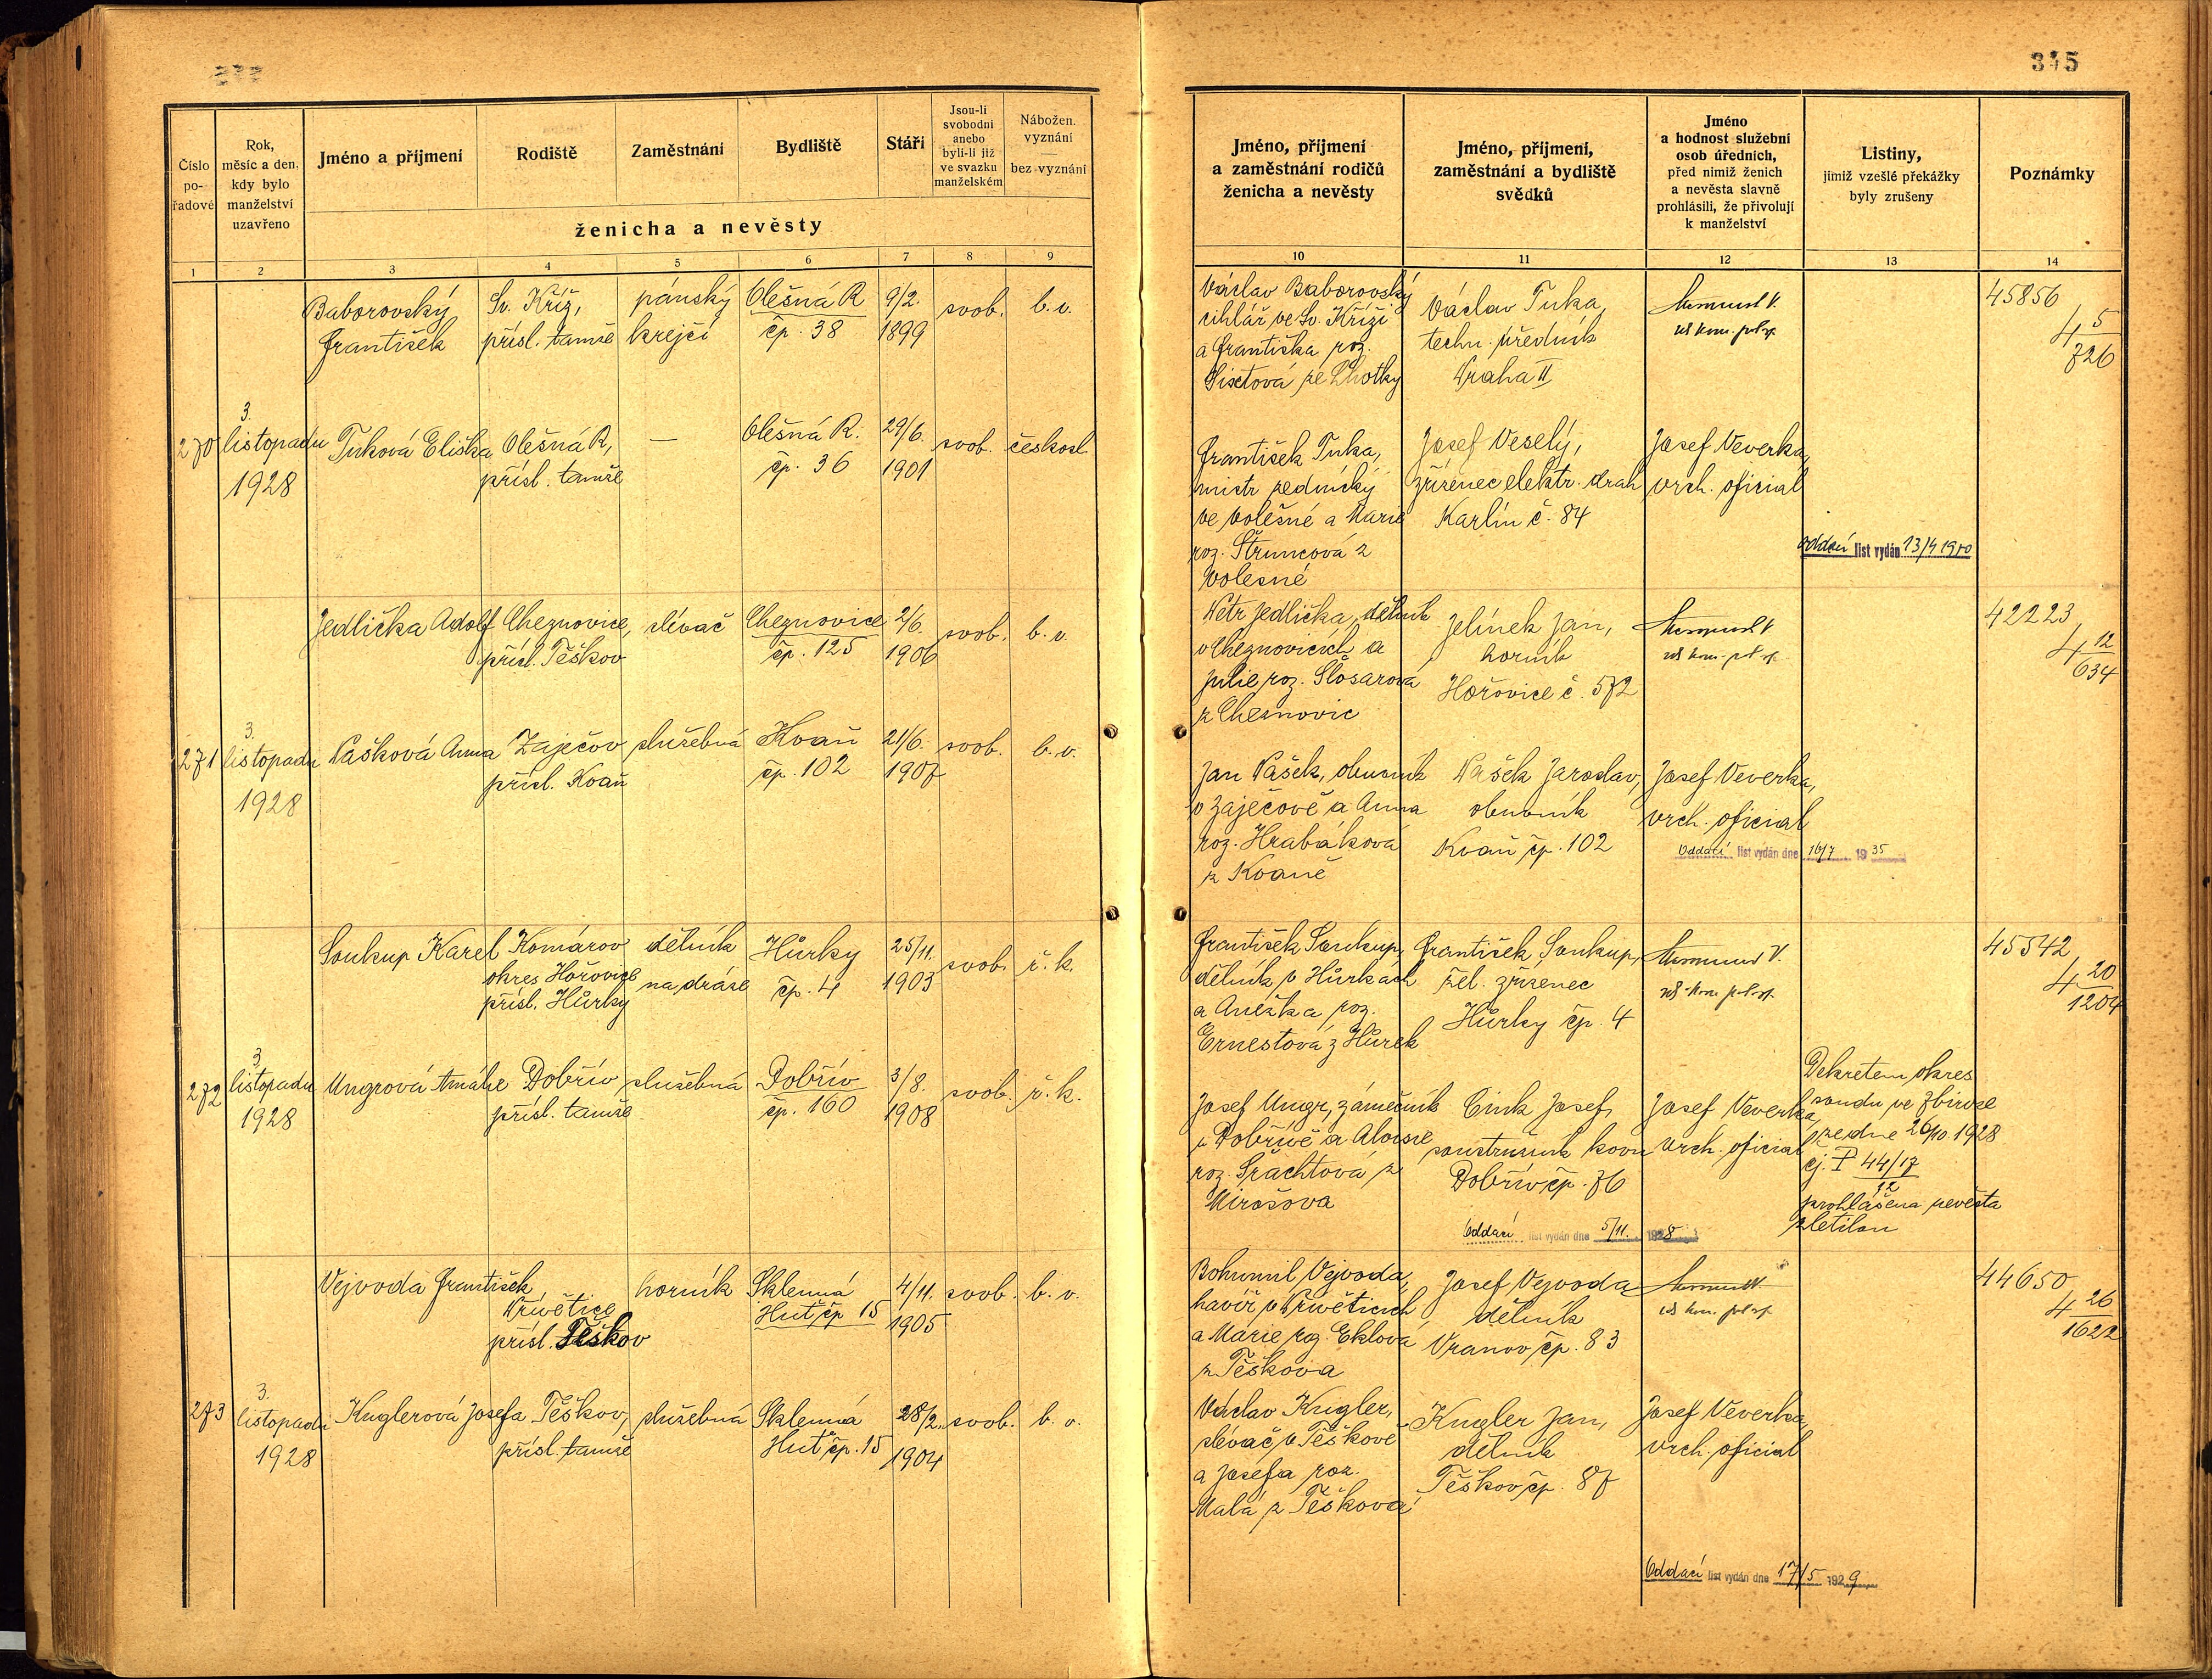 315
Číslo
po-
řadové
Rok,
měsíc a den,
kdy bylo
manželství
uzavřeno
Jméno a příjmení
Rodiště
Zaměstnání
Bydliště
Stáří
Jsou-li
svobodni
anebo
byli-li již
ve svazku
manželském
Nábožen.
vyznání
—
bez vyznání
ženicha a nevěsty
1 2 3 4 5 6 7 8 9
Baborovský Sv. Kříž, pánský Olešná R 9/2. svob. b.v.
František přísl. tamže krejčí čp. 38 1899
3.
270 listopadu Tuková Eliška Olešná R, — Olešná R. 29/6. svob. českosl.
1928 přísl. tamže čp. 36 1901
Jedlička Adolf Cheznovice, slévač Cheznovice 2/6. svob. b.v.
přísl. Těškov čp. 125 1906
3.
271 listopadu Vašková Anna Zaječov služebná Kvaň 21/6. svob. b.v.
1928 přísl. Kvaň čp. 102 1907
Soukup Karel Komárov dělník Hůrky 25/11. svob. ř.k.
okres Hořovice na dráze čp. 4 1903
přísl. Hůrky
3.
272 listopadu Ungrová Amálie Dobřív služebná Dobřív 3/8. svob. ř.k.
1928 přísl. tamže čp. 160 1908
Vejvoda František, horník Sklenná 4/11. svob. b.v.
Přívětice Huť čp 15 1905
přísl. Těškov
3.
273 listopadu Kuglerová Josefa Těškov, služebná Sklenná 28/2. svob. b.v.
1928 přísl. tamže Huť čp. 15 1904
Jméno, příjmení
a zaměstnání rodičů
ženicha a nevěsty
Jméno, příjmení,
zaměstnání a bydliště
svědků
Jméno
a hodnost služební
osob úředních,
před nimiž ženich
a nevěsta slavně
prohlásili, že přivolují
k manželství
Listiny,
jimiž vzešlé překážky
byly zrušeny
Poznámky
10 11 12 13 14
Václav Baborovský
cihlář ve Sv. Kříži
a Františka roz.
ze Lhotky
Václav Tuka,
techn. úředník
Praha II
45856
4 5/726
František Tuka,
mistr zednický
ve Volešné a Marie
roz. Štruncová z
Volesné
Josef Veselý,
zřízenec elektr. drah
Karlín č. 84
Josef Veverka,
vrch. oficial
Oddací list vydán 13/4 1940
Petr Jedlička, dělník
v Cheznovicích a
Julie roz. Šlosarová
z Cheznovic
Jelínek Jan,
horník
Hořovice č. 572
42223
4 12/634
Jan Vašek, obuvník
v Zaječově a Anna
roz. Hrabáková
z Kvaně
Vašek Jaroslav,
obuvník
Kvaň čp. 102
Josef Veverka,
vrch. oficial
Oddací list vydán dne 16/7 1935
František Soukup,
dělník v Hůrkách
a Anežka roz.
Ernestová z Hůrek
František Soukup,
žel. zřízenec
Hůrky čp. 4
45542
4 20/1204
Josef Ungr, zámečník
v Dobřívě a Aloisie
roz. Šrachtová z
Mirošova
Cink Josef,
soustružník kovu
Dobřív, čp. 76
Josef Veverka,
vrch. oficial
Dekretem okres.
soudu ve Zbiroze
ze dne 26/10. 1928
čj. P 44/17
12
prohlášena nevěsta
zletilou
Oddací list vydán dne 5/11. 1928
Bohumil Vejvoda,
havíř v Přívěticích
a Marie roz. Eklová
z Těškova
Josef Vejvoda
dělník
Vranov čp. 83
44650
4 26/1622
Václav Kugler,
slévač, v Těškově
a Josefa roz.
Malá z Těškova
Kugler Jan,
dělník
Těškov, čp. 87
Josef Veverka,
vrch. oficial
Oddací list vydán dne 17/5 1929